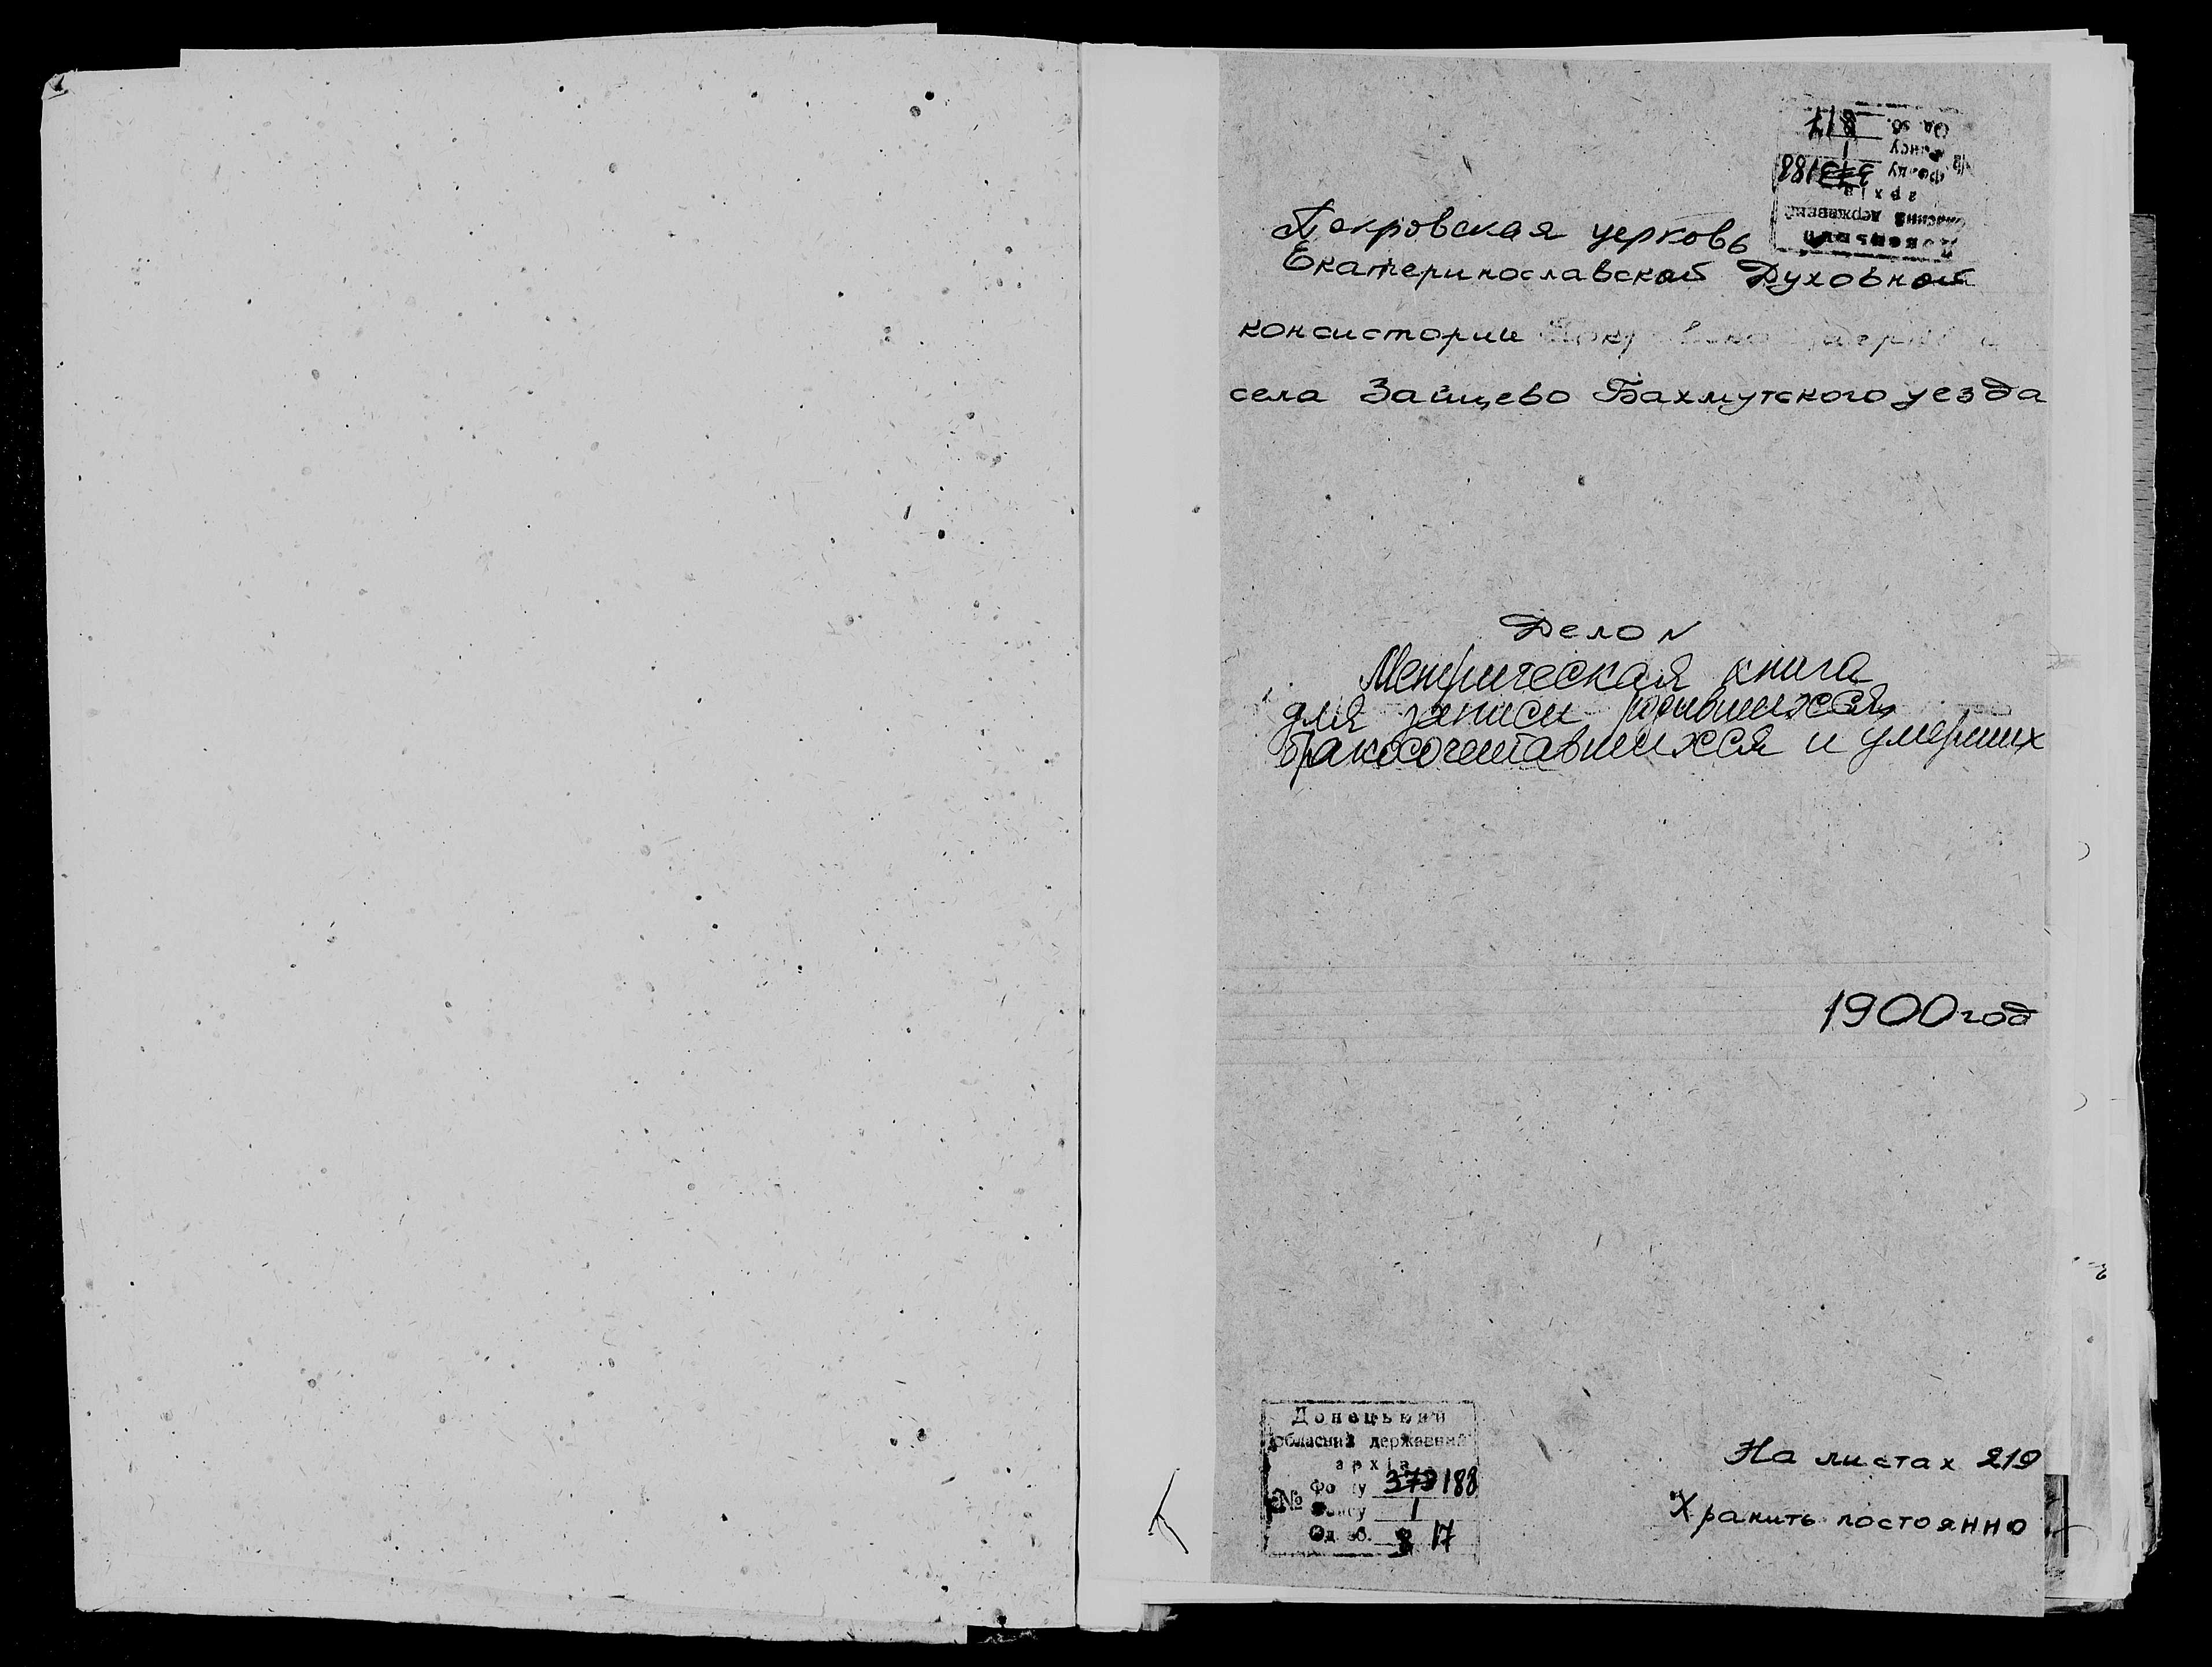 Покровская церковь
Екатеринославской Духовной
консистории
села Зайцево Бахмутского уезда
Дело №
Метрическая книга
для записи родившихся,
бракосочетавшихся и умерших
1900 год
На листах 219
Хранить постоянно
Донецький
обласний державний
архів
Фонду 373 188
№ Опису 1
Од. зб. 17
Донецький
обласний державний
архів
Фонду 373 188
№ Опису 1
Од. зб. 17